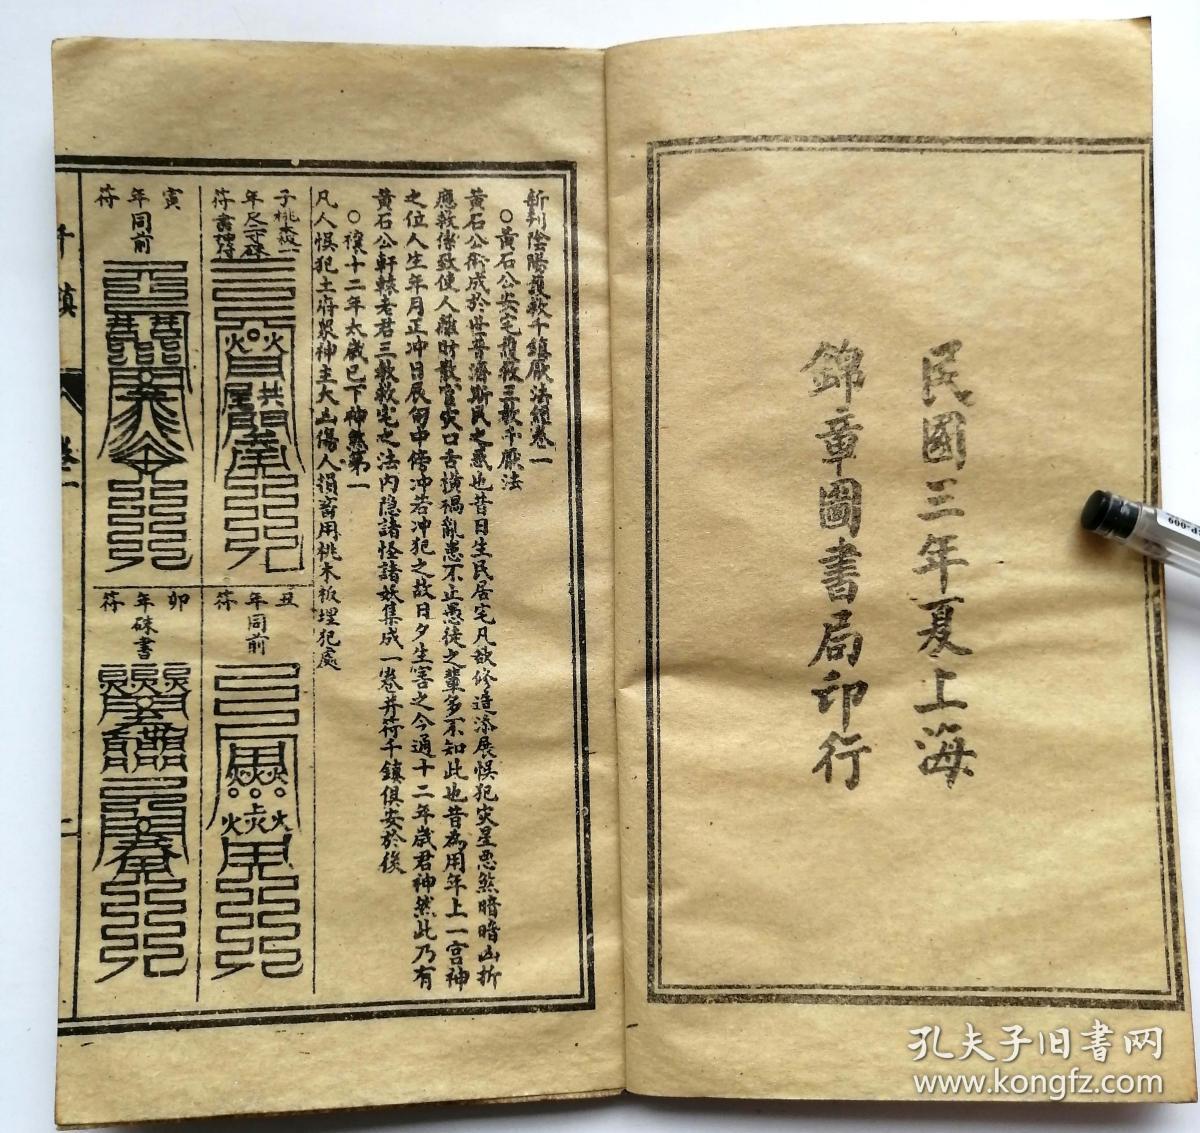 民國三年夏上海
錦章圖書局印行
新刋陰陽護救千鎮厭法經卷一
○黃石公安宅護救三教千厭法
黃石公術成於世普濟斯民之惑也昔日生民居宅凡欲修造添展悞犯灾星惡煞暗暗凶折
應教墻致使人離財散官灾口舌橫禍亂患不止愚徒之輩多不知此也昔為用年上一宫神
之位人生年月正冲日辰旬中傍冲若冲犯之故日夕生害之今通十二年歲君神煞此乃有
黃石公軒轅老君三教救宅之法内隐諸怪諸妖集成一卷并符千鎮俱安於後
○禳十二年太歲已下神煞第一
凡人悞犯土府衆神主大凶傷人損畜用桃木板埋犯處
子年符
桃木板一尺二寸硃書
寅年符
同前
丑年符
同前
卯年符
硃書
千鎮
卷一
一
CP-009
孔夫子旧书网
www.kongfz.com